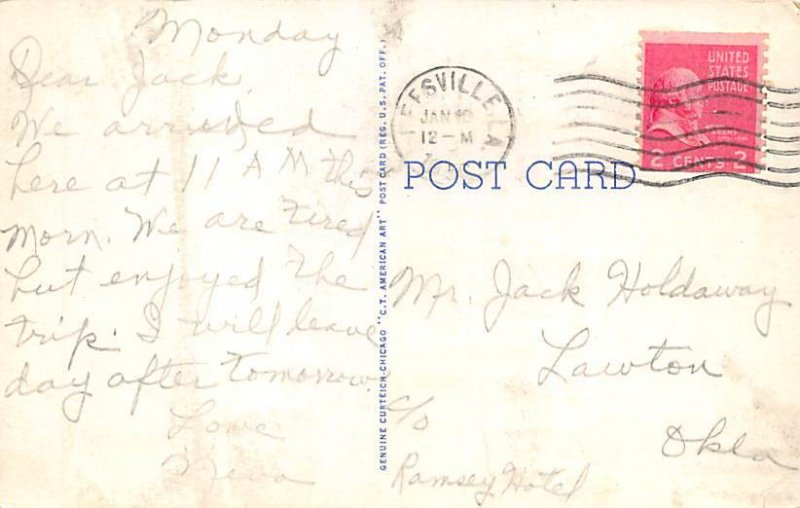 Monday
Dear Jack,
We arrived
here at 11 AM this
morn. We are tired
but enjoyed the
trip. I will leave
day after tomorrow.
Love
Neva
GENUINE CURTEICH-CHICAGO "C.T. AMERICAN ART" POST CARD (REG. U.S. PAT. OFF.)
EESVILLE, LA
JAN
12-M
UNITED
STATES
POSTAGE
2 CENTS 2
POST CARD
Mr. Jack Holdaway
Lawton
Okla
c/o
Ramsey Hotel